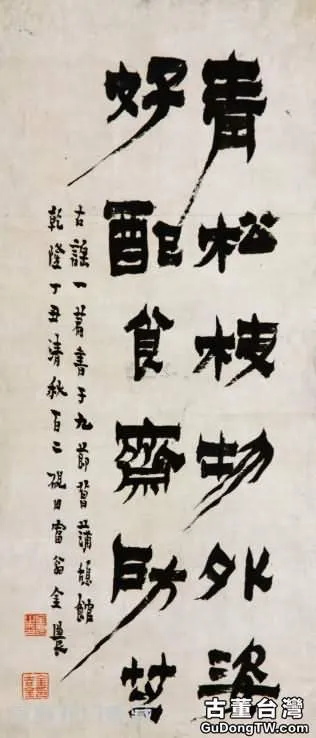 青松枝物外姿
好配食齋房芝
古謠一首書于九節菖蒲憩館
乾隆丁丑清秋百二硯田富翁金農
古董台灣
GuDongTW.com